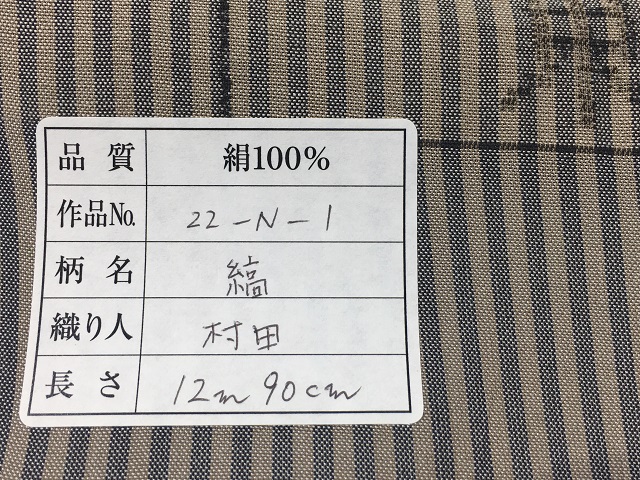 品質 絹100%
作品No. 22-N-1
柄名 縞
織り人 村田
長さ 12m 90cm